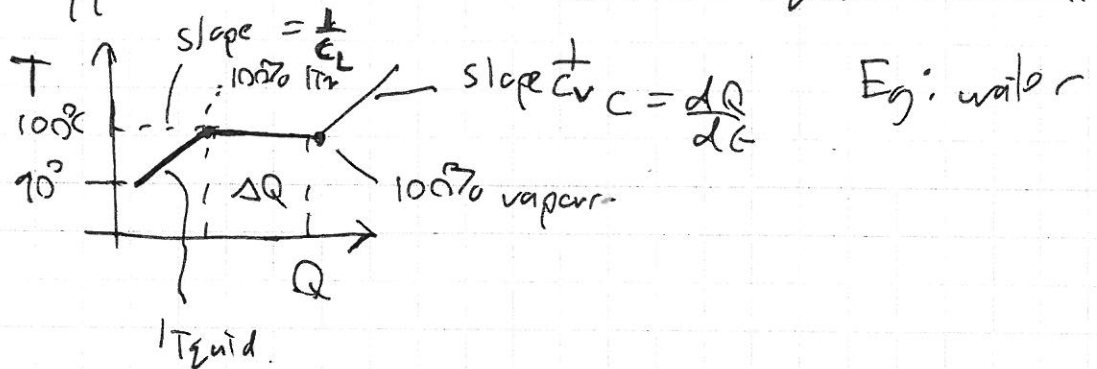 slope = 1/C_L
T
100% liq
slope 1/C_V
C = dQ/dt
Eg: water
100°C
90°
ΔQ
100% vapour
Q
liquid.